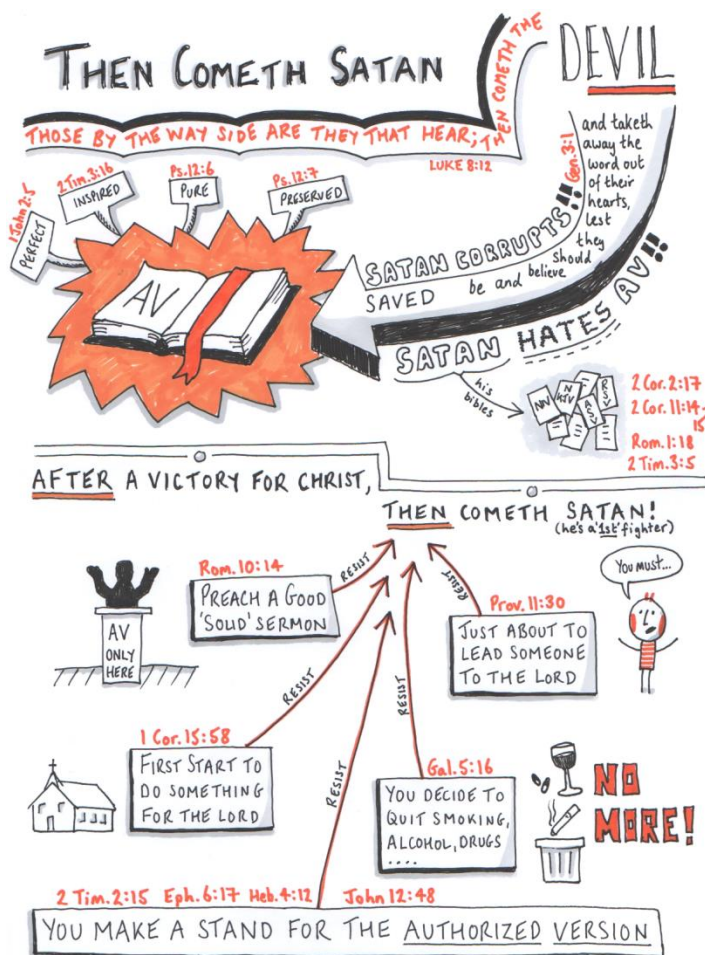 THEN COMETH SATAN
DEVIL
THOSE BY THE WAY SIDE ARE THEY THAT HEAR; THEN COMETH THE
LUKE 8:12
and taketh
away the
word out
of their
hearts,
lest
they
should
believe
and
be
SAVED
1 John 2:5
PERFECT
2 Tim. 3:16
INSPIRED
Ps. 12:6
PURE
Ps. 12:7
PRESERVED
AV
SATAN CORRUPTS!!
Gen. 3:1
SATAN HATES AV!!
his
bibles
NIV
N
KJV
RSV
ASV
2 Cor. 2:17
2 Cor. 11:14-
15
Rom. 1:18
2 Tim. 3:5
AFTER A VICTORY FOR CHRIST,
THEN COMETH SATAN!
(he's a '1st' fighter)
Rom. 10:14
PREACH A GOOD
'SOLID' SERMON
RESIST
AV
ONLY
HERE
RESIST
Prov. 11:30
JUST ABOUT TO
LEAD SOMEONE
TO THE LORD
You must...
1 Cor. 15:58
FIRST START TO
DO SOMETHING
FOR THE LORD
RESIST
Gal. 5:16
YOU DECIDE TO
QUIT SMOKING,
ALCOHOL, DRUGS
....
RESIST
NO
MORE!
RESIST
2 Tim. 2:15 Eph. 6:17 Heb. 4:12 John 12:48
YOU MAKE A STAND FOR THE AUTHORIZED VERSION